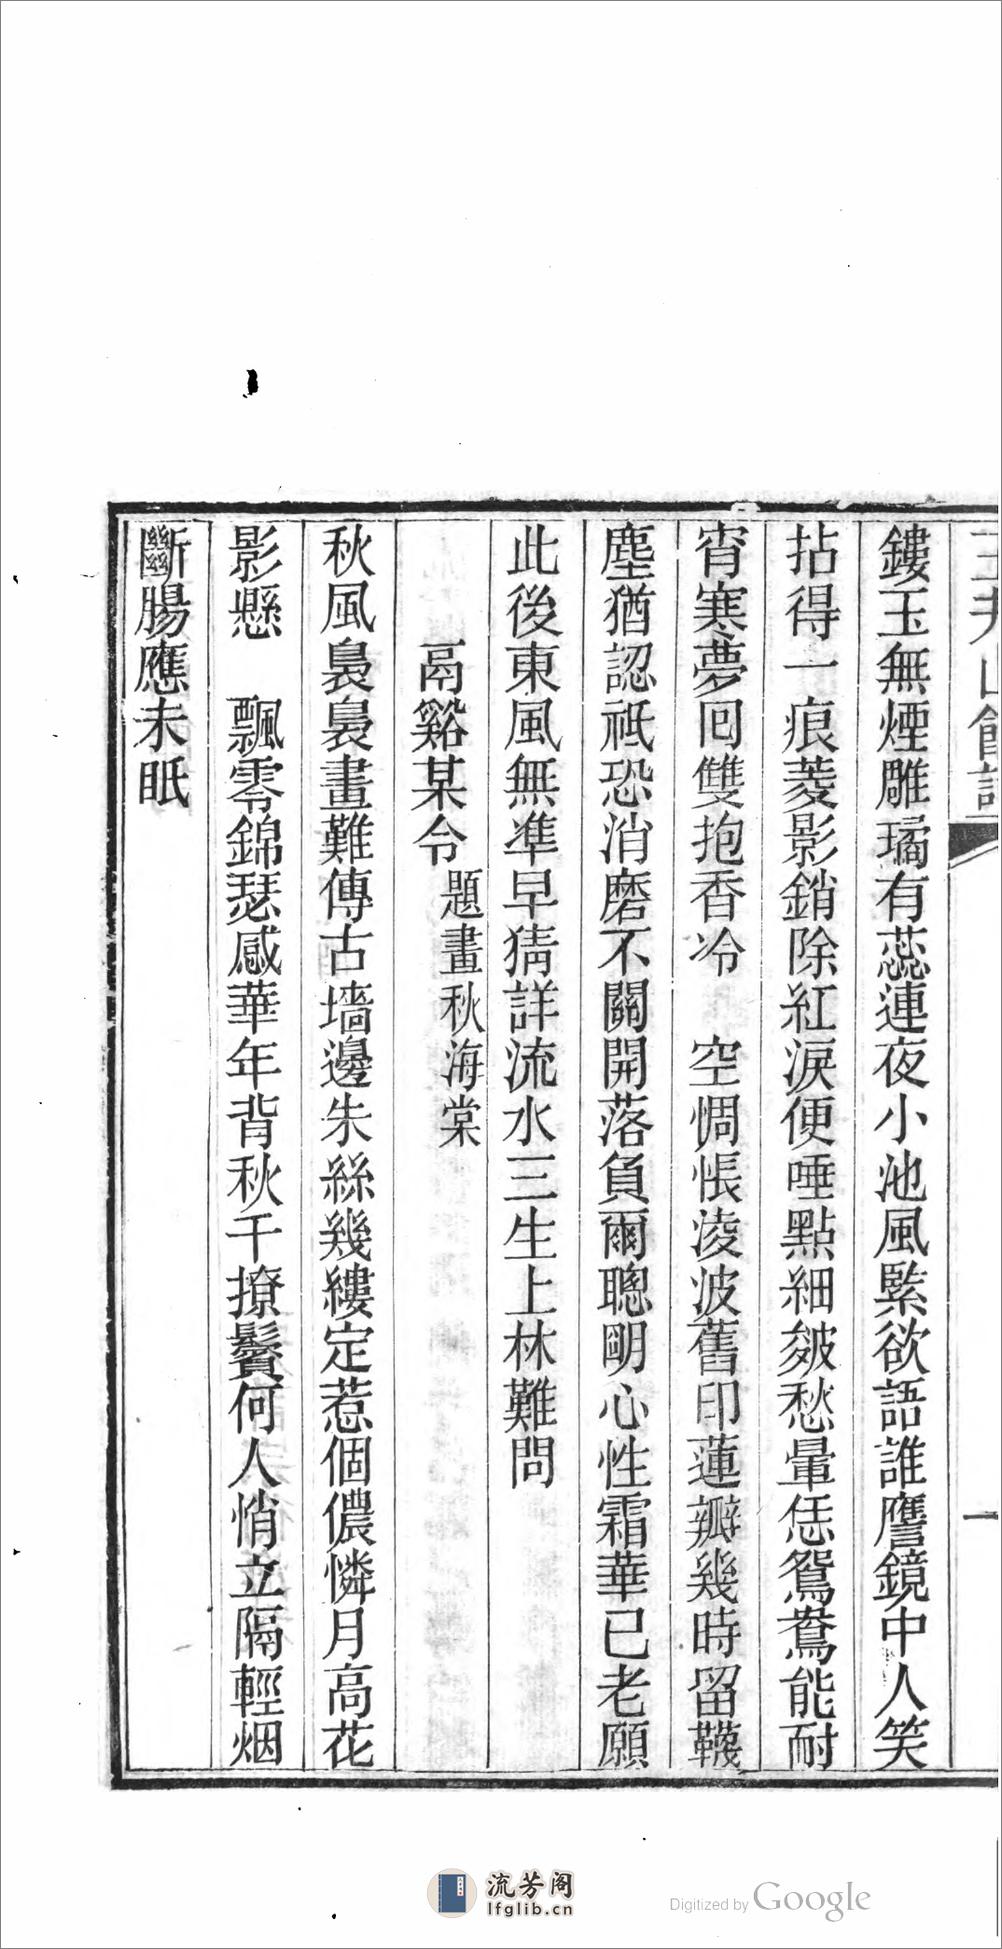 鏤玉無煙雕璚有蕊連夜小池風緊欲語誰譍鏡中人笑
拈得一痕菱影銷除紅淚便唾點細皴愁暈恁鴛鴦能耐
宵寒夢回雙抱香冷　空惆悵淩波舊印蓮瓣幾時留韈
塵猶認祗恐消磨不關開落負爾聰明心性霜華已老願
此後東風無準早猜詳流水三生上林難問
鬲谿某令　題畫秋海棠
秋風裊裊畫難傳古墻邊朱絲幾縷定惹個儂憐月高花
影懸　飄零錦瑟感華年背秋千撩鬢何人悄立隔輕烟
斷腸應未眠
一
流芳阁
lfglib.cn
Digitized by Google